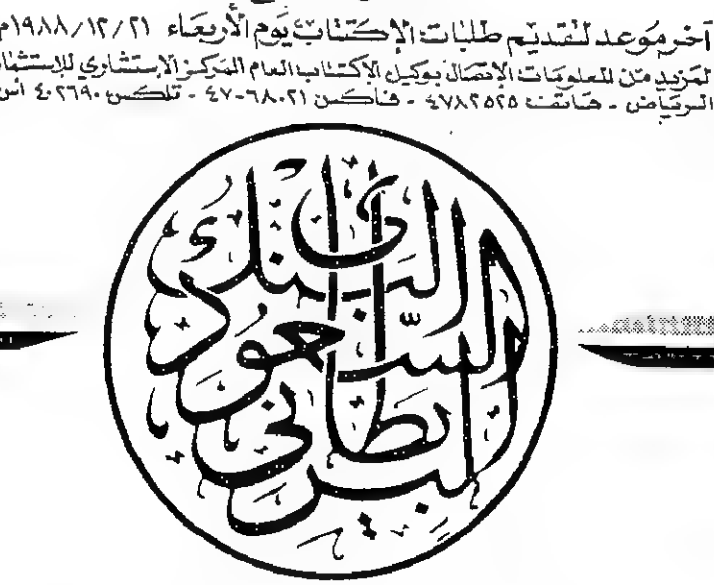 آخر موعد لتقديم طلبات الإكتتاب يوم الأربعاء ١٩٨٨/١٢/٢١م
لمزيد من المعلومات الإتصال بوكيل الإكتتاب العام المركز الإستشاري للإستثمار
الرياض - هاتف: ٤٧٨٢٥٢٥ - فاكس ٤٧٠٦٨٠٢١ - تلكس ٤٠٢٦٩٠
البنك
السعودي
البريطاني